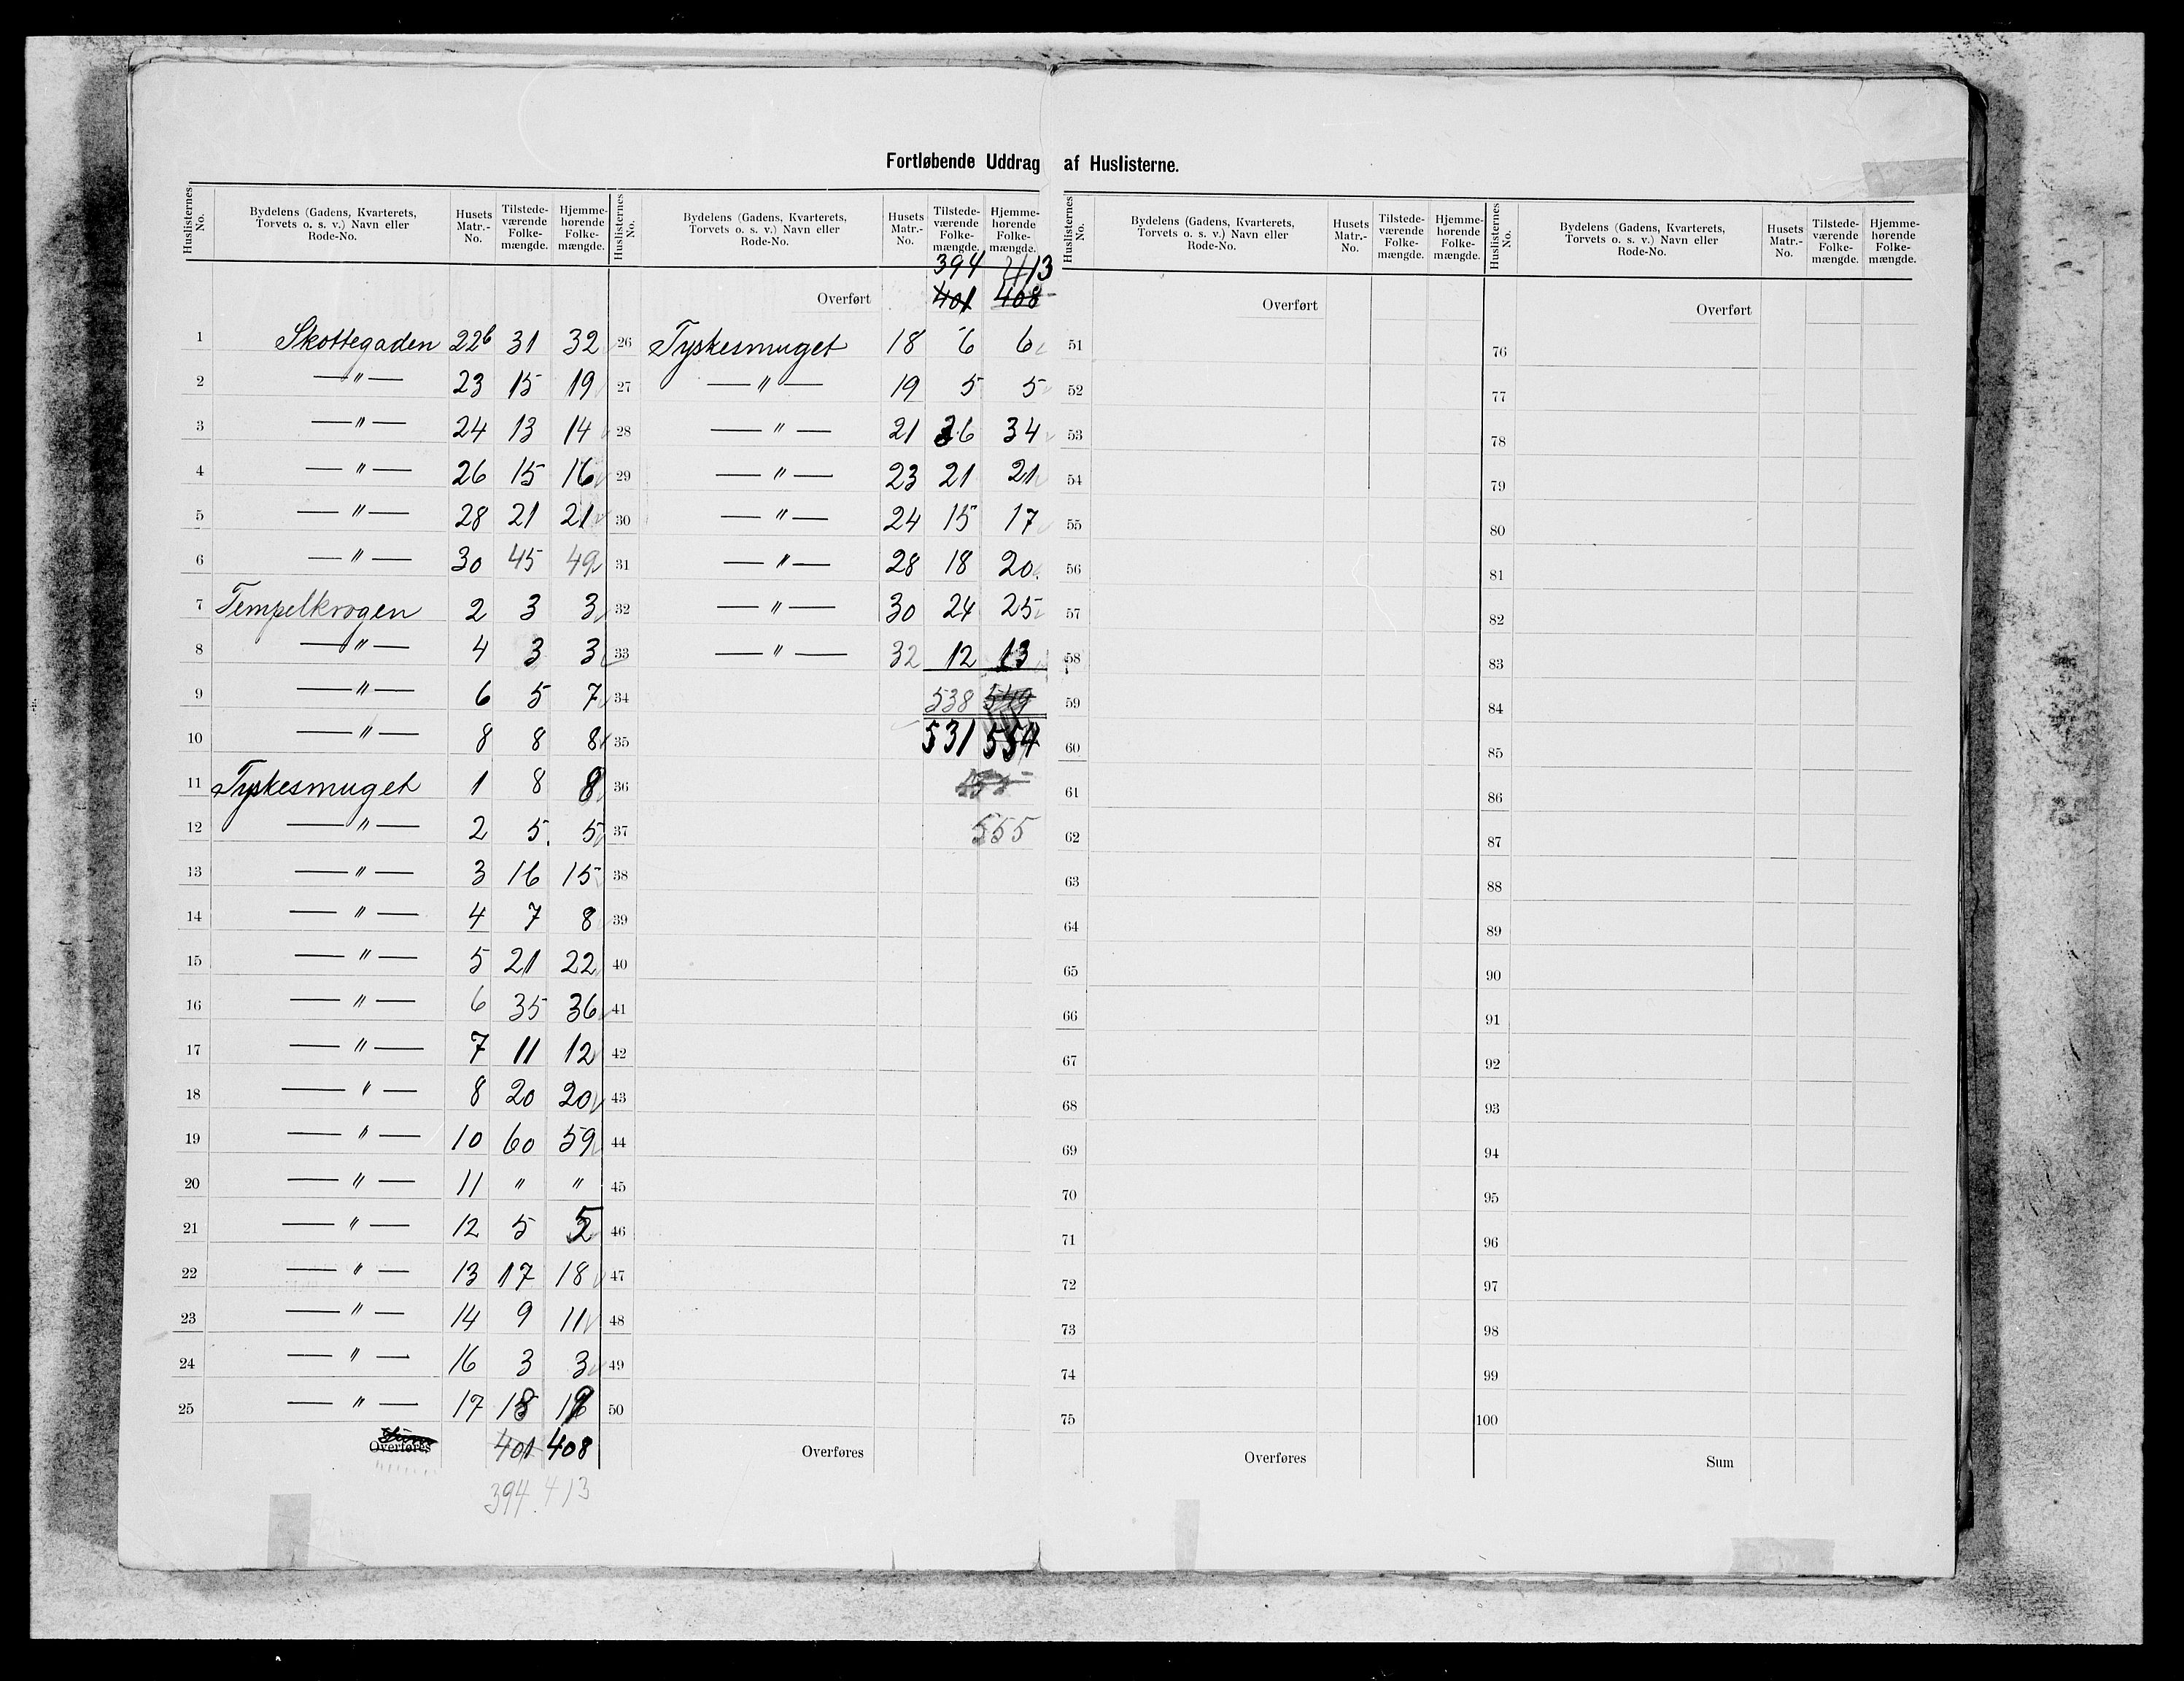 Fortløbende Uddrag af Huslisterne.
Huslisternes No. | Bydelens (Gadens, Kvarterets, Torvets o. s. v.) Navn eller Rode-No. | Husets Matr.-No. | Tilstedeværende Folkemængde. | Hjemmehørende Folkemængde.
1 Skottegaden 22b 31 32
2 —〃— 23 15 19
3 —〃— 24 13 14
4 —〃— 26 15 16
5 —〃— 28 21 21
6 —〃— 30 45 49
7 Tempelkrogen 2 3 3
8 —〃— 4 3 3
9 —〃— 6 5 7
10 —〃— 8 8 8
11 Tyskesmuget 1 8 8
12 —〃— 2 5 5
13 —〃— 3 16 15
14 —〃— 4 7 8
15 —〃— 5 21 22
16 —〃— 6 35 36
17 —〃— 7 11 12
18 —〃— 8 20 20
19 —〃— 10 60 59
20 —〃— 11 〃 〃
21 —〃— 12 5 5
22 —〃— 13 17 18
23 —〃— 14 9 11
24 —〃— 16 3 3
25 —〃— 17 18 19
Overføres 401 408
394. 413
Huslisternes No. | Bydelens (Gadens, Kvarterets, Torvets o. s. v.) Navn eller Rode-No. | Husets Matr.-No. | Tilstedeværende Folkemængde. | Hjemmehørende Folkemængde.
394 413
Overført 401 408
26 Tyskesmuget 18 6 6
27 —〃— 19 5 5
28 —〃— 21 36 34
29 —〃— 23 21 21
30 —〃— 24 15 17
31 —〃— 28 18 20
32 —〃— 30 24 25
33 —〃— 32 12 13
34 538 549
35 531 554
36
37 555
38
39
40
41
42
43
44
45
46
47
48
49
50
Overføres
Huslisternes No. | Bydelens (Gadens, Kvarterets, Torvets o. s. v.) Navn eller Rode-No. | Husets Matr.-No. | Tilstedeværende Folkemængde. | Hjemmehørende Folkemængde.
Overført
51
52
53
54
55
56
57
58
59
60
61
62
63
64
65
66
67
68
69
70
71
72
73
74
75
Overføres
Huslisternes No. | Bydelens (Gadens, Kvarterets, Torvets o. s. v.) Navn eller Rode-No. | Husets Matr.-No. | Tilstedeværende Folkemængde. | Hjemmehørende Folkemængde.
Overført
76
77
78
79
80
81
82
83
84
85
86
87
88
89
90
91
92
93
94
95
96
97
98
99
100
Sum